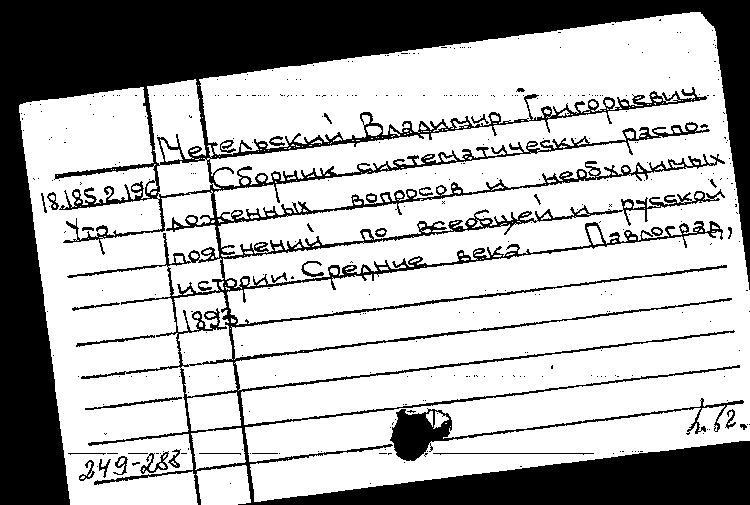 Четельский, Владимир Григорьевич
18.185.2.196 Сборник систематически распо-
Утр. ложенных вопросов и необходимых
пояснений по всеобщей и русской
истории. Средние века. Павлоград,
1893.
249-283